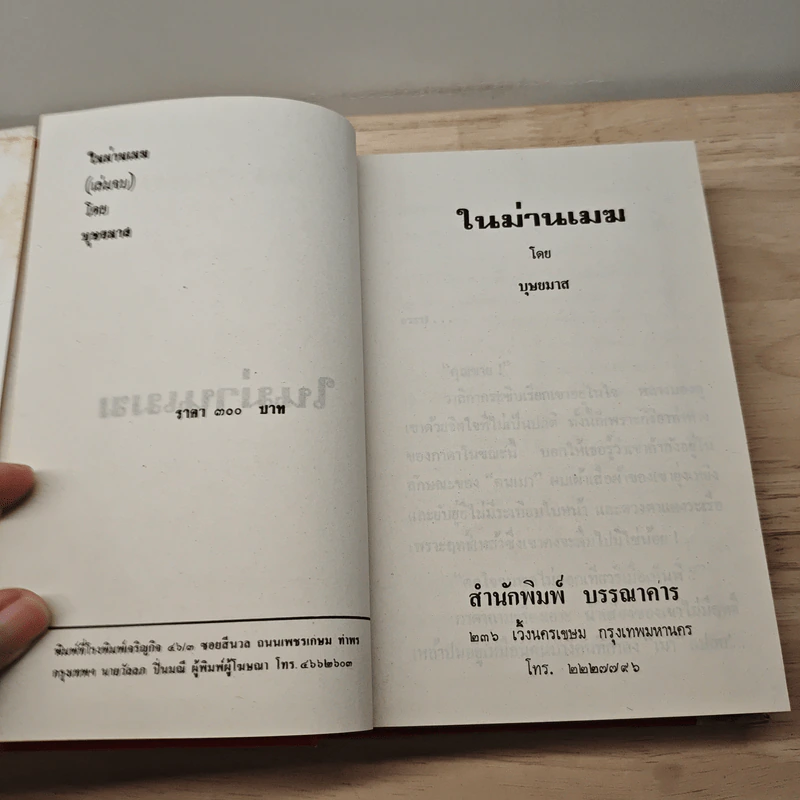 ในม่านเมฆ
(เล่มจบ)
โดย
บุษยมาส
ราคา ๓๐๐ บาท
พิมพ์ที่โรงพิมพ์เจริญกิจ ๔๖/๓ ซอยสีนวล ถนนเพชรเกษม ท่าพระ
กรุงเทพฯ นายวัลลภ ปิ่นมณี ผู้พิมพ์ผู้โฆษณา โทร. ๔๖๖๒๖๐๓
ในม่านเมฆ
โดย
บุษยมาส
สำนักพิมพ์ บรรณาคาร
๒๓๖ เวิ้งนครเขษม กรุงเทพมหานคร
โทร. ๒๒๒๗๗๙๖